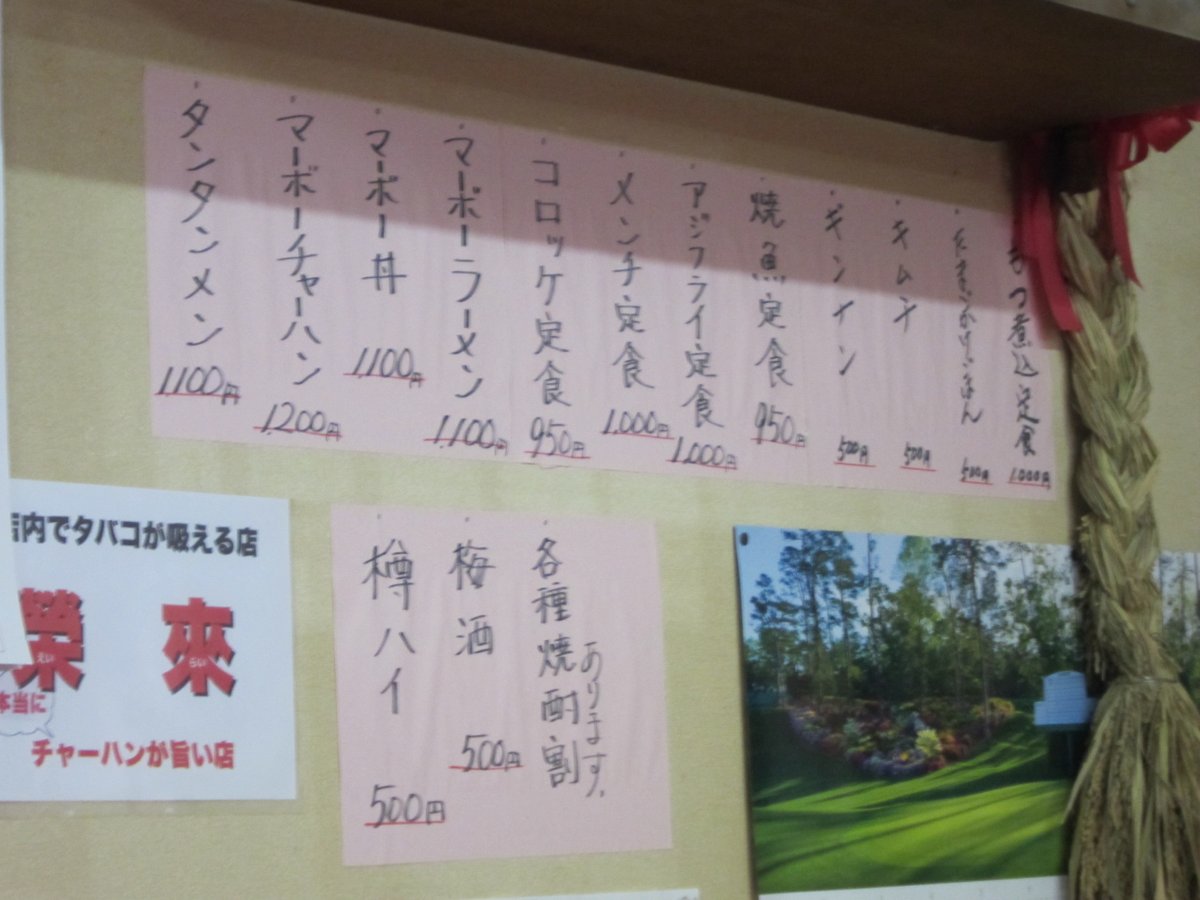 もつ煮込定食 1000円
たまごかけごはん 500円
キムチ 500円
ギンナン 500円
焼魚定食 950円
アジフライ定食 1,000円
メンチ定食 1,000円
コロッケ定食 950円
マーボーラーメン 1,100円
マーボー丼 1,100円
マーボーチャーハン 1,200円
タンタンメン 1,100円
各種焼酎割
あります。
梅酒 500円
樽ハイ 500円
店内でタバコが吸える店
榮來
えい
らい
本当に
チャーハンが旨い店